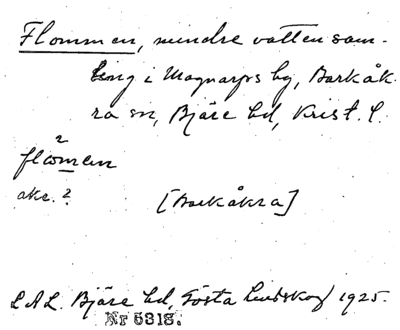 Flommen, mindre vattensam-
ling i Magnarps by, Barkåk-
ra sn, Bjäre hd, Krist. l.
flὼmen
akc. 2
[Barkåkra]
L A L. Bjäre hd, Gösta Lindskog 1925.
Nr 5318.